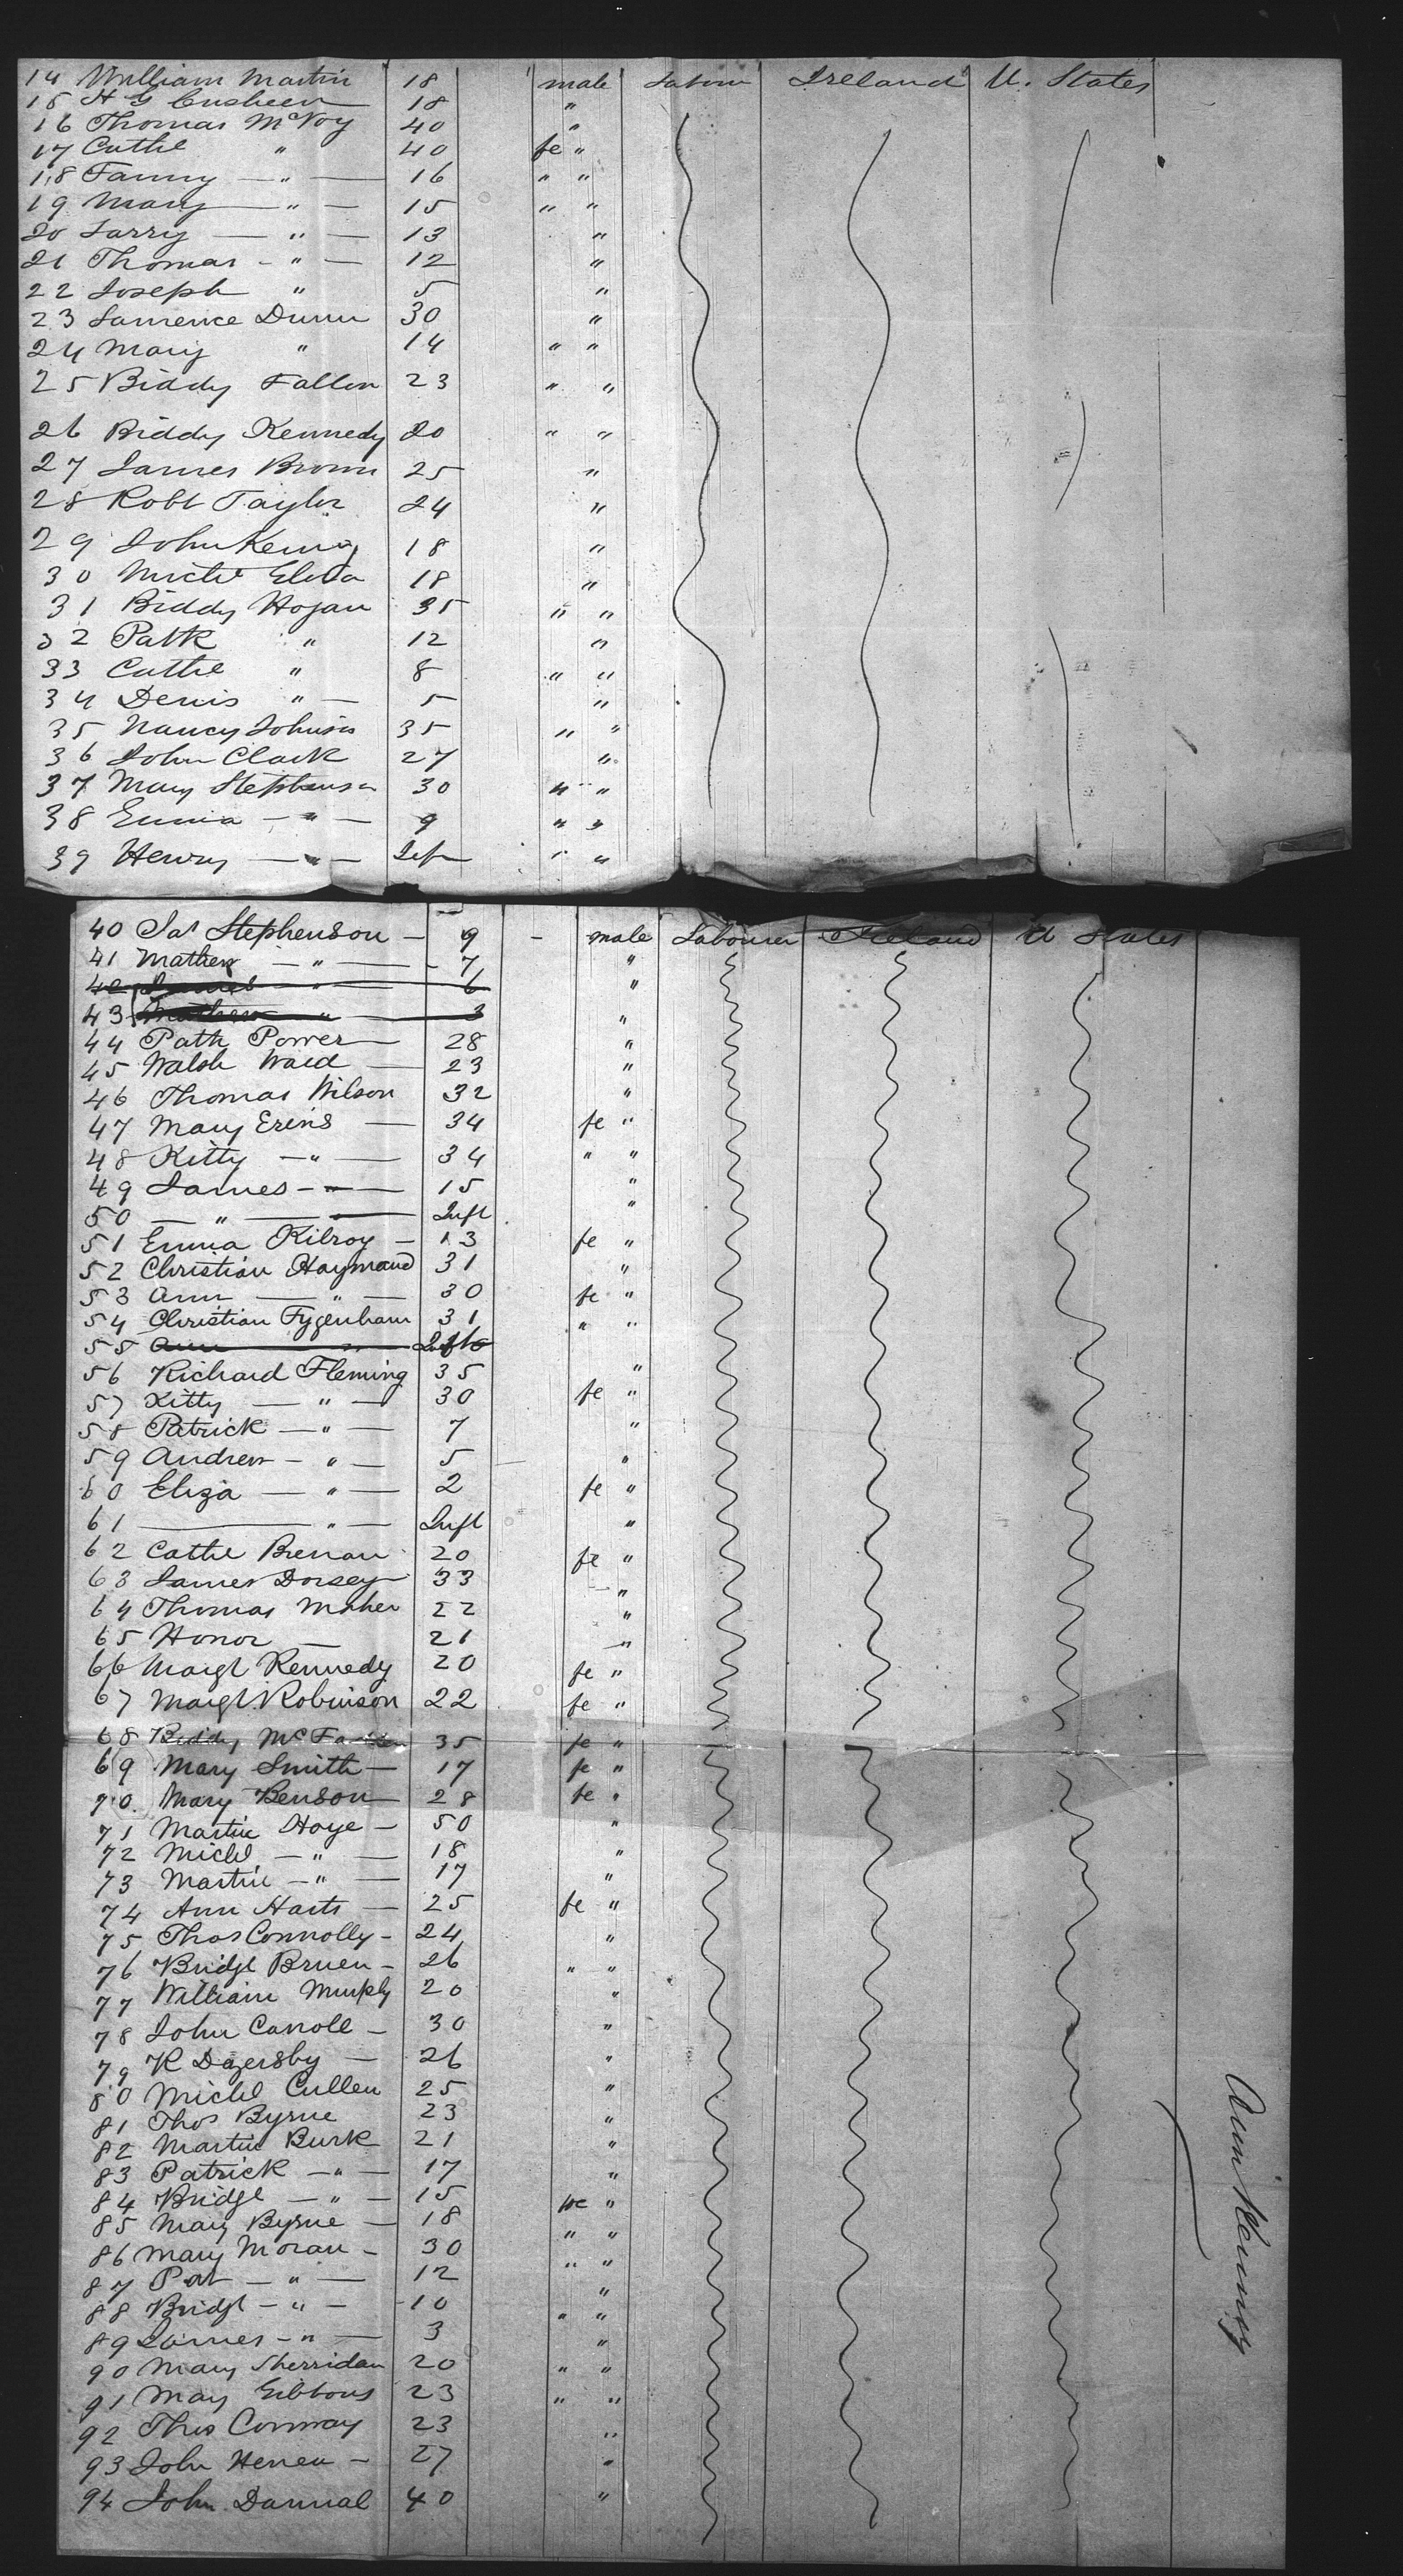 14 William Martin 18 male Labour Ireland U. States
15 H G 18 "
16 Thomas McVoy 40 "
17 Cathe " 40 fe "
18 Fanny — " — 16 " "
19 Mary — " — 15 " "
20 Larry — " — 13 "
21 Thomas - " — 12 "
22 Joseph " 5 "
23 Lawrence Dunn 30 "
24 Mary " 14 " "
25 Biddy Fallon 23 " "
26 Biddy Kennedy 20 " "
27 James Brown 25 "
28 Robt Taylor 24 "
29 John 18 "
30 Michl 18 "
31 Biddy Hogan 35 " "
32 Patk " 12 "
33 Cathe " 8 " "
34 Denis " — 5 "
35 Nancy Johnson 35 " "
36 John Clark 27 "
37 Mary Stephenson 30 " "
38 Emma — " — 9 " "
39 Henry — " — Inf " "
40 Jas Stephenson — 9 - male Labourer Ireland U States
41 Mathew — " — 7 "
42 " — 6 "
43 Mathew " — 3 "
44 Patk Power — 28 "
45 Walsh Ward — 23 "
46 Thomas Wilson 32 "
47 Mary Erins — 34 fe "
48 Kitty — " — 34 " "
49 James - " — 15 "
50 — " — Inft "
51 Emma Kilroy — 13 fe "
52 Christian Haymand 31 "
53 Ann — " — 30 fe "
54 Christian Fygenham 31 " "
55 Ann " Inft
56 Richard Fleming 35 "
57 Kitty — " — 30 fe "
58 Patrick — " — 7 "
59 Andrew - " — 5 "
60 Eliza — " — 2 fe "
61 — " — Inft "
62 Cathe Brenan 20 fe "
63 James Dorsey 33 "
64 Thomas Maher 22 "
65 Honor — 21 "
66 Margt Kennedy 20 fe "
67 Margt Robinson 22 fe "
68 Biddy 35 fe "
69 Mary Smith — 17 fe "
70 Mary Benson 28 fe "
71 Martin Hoye — 50 "
72 Michl — " — 18 "
73 Martin — " — 17 "
74 Ann Harts — 25 fe "
75 Thos Connolly - 24 "
76 Bridgt Bruen - 26 " "
77 William Murphy 20 "
78 John Carroll — 30 "
79 K Dagersby — 26 "
80 Michl Cullen 25 "
81 Thos Byrne 23 "
82 Martin Burk 21 "
83 Patrick — " — 17 "
84 Bridgt — " — 15 fe "
85 Mary Byrne — 18 " "
86 Mary Moran - 30 " "
87 Pat — " — 12 "
88 Bridgt - " — 10 " "
89 James - " — 3 "
90 Mary Sherridan 20 " "
91 Mary Gibbons 23 " "
92 Thos Conway 23 "
93 John Heneu — 27 "
94 John Dannal 40 "
Ann